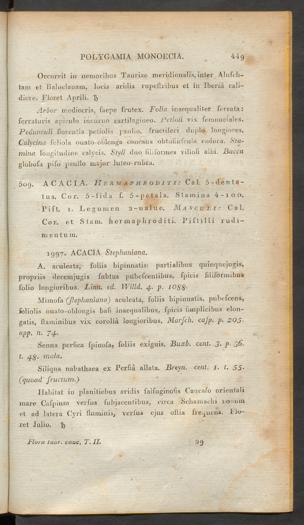 POLYGAMIA MONOECIA. 449
Occurrit in nemoribus Tauriae meridionalis, inter Alusch-
tam et Baluclavam, locis aridis rupestribus et in Iberia cali-
diore. Floret Aprili. ♄
Arbor mediocris, saepe frutex. Folia inaequaliter serrata:
serraturis apiculo incurvo cartilagineo. Petioli vix semunciales.
Pedunculi florentis petiolis paulo, fructiferi duplo longiores.
Calycina foliola ovato-oblonga concava obtusiuscula nudata. Sta-
mina longitudine calycis. Styli duo filiformes villosi albi. Bacca
globosa piso paullo major luteo-rubra.
609. ACACIA. HERMAPHRODITI: Cal. 5-denta-
tus. Cor. 5-fida s. 5-petala. Stamina 4-100.
Pist. 1. Legumen 2-valve. MASCULI: Cal.
Cor. et Stam. hermaphroditi. Pistilli rudi-
mentum.
1997. ACACIA Stephaniana.
A. aculeata, foliis bipinnatis: partialibus quinquejugis,
propriis decemjugis subtus pubescentibus, spicis filiformibus
folio longioribus. Linn. sd. Willd. 4. p. 1088.
Mimosa (Stephaniana) aculeata, foliis bipinnatis, pubescens,
foliolis ovato-oblongis basi inaequalibus, spicis simplicibus elon-
gatis, staminibus vix corolla longioribus. Marsch. casp. p. 205.
app. n. 74.
Senna persica spinosa, foliis exiguis. Buxb. cent. 3. p. 26.
t. 48. mala.
Siliqua nabathaea ex Persia allata. Breyn. cent. 1. t. 55.
(quoad fructum.)
Habitat in planitiebus aridis salsuginosis Caucaso orientali
mare Caspium versus subjacentibus, circa Schamachi
et ad latera Cyri fluminis, versus ejus ostia frequens. Flo-
ret Julio. ♄
Flora taur. cauc. T. II. 29